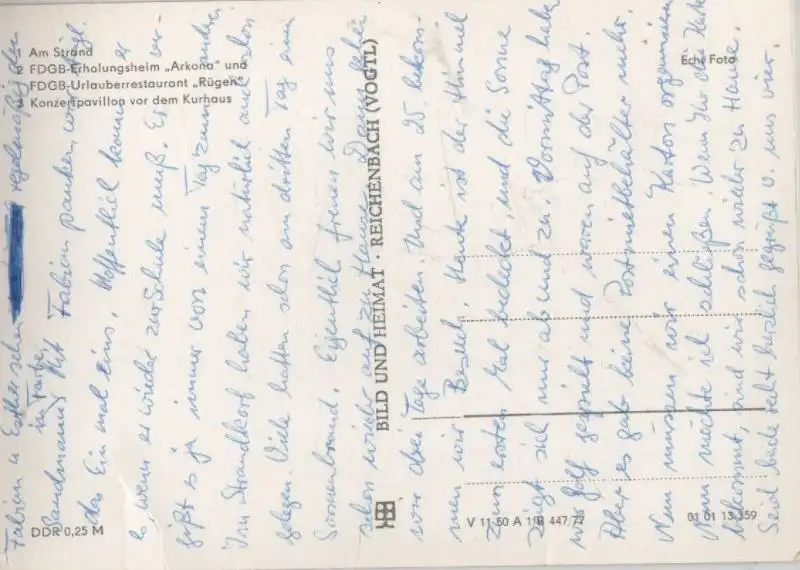 1 Am Strand
2 FDGB-Erholungsheim „Arkona“ und
FDGB-Urlauberrestaurant „Rügen“
3 Konzertpavillon vor dem Kurhaus
Echt Foto
BILD UND HEIMAT · REICHENBACH (VOGTL)
DDR 0,25 M
V 11 50 A 1/B 447/77
01 01 13 359
Fabian u. Esther sehen regelmäßig den
in Farbe
Sandmann. Mit Fabian pauken wir tägl.
das Ein mal eins. Hoffentlich kann er
es wenn er wieder zur Schule muß. Er
gißt s ja immer von einem Tag zum
Im Strandkorb haben wir natürlich auch schon
gelegen. Viele hatten schon am dritten Tag ein
Sonnenbrand. Eigentlich freuen wir uns
schon wieder auf zu Hause. Dann
wir drei Tage arbeiten. Und am 25. bekom-
men wir Besuch. Heute ist der Himmel
zum ersten Mal bedeckt, und die Sonne
zeigt sich nur ab und zu. Vormittag habe
wir Golf gespielt und waren auf der Post.
Aber es gab keine mehr.
Nun müssen wir einen Karton organisieren
Nun möchte ich schließen. Wenn Ihr die Karte
bekommt, sind wir schon wieder zu Hause.
Seid beide recht herzlich gegrüßt v. uns vier.